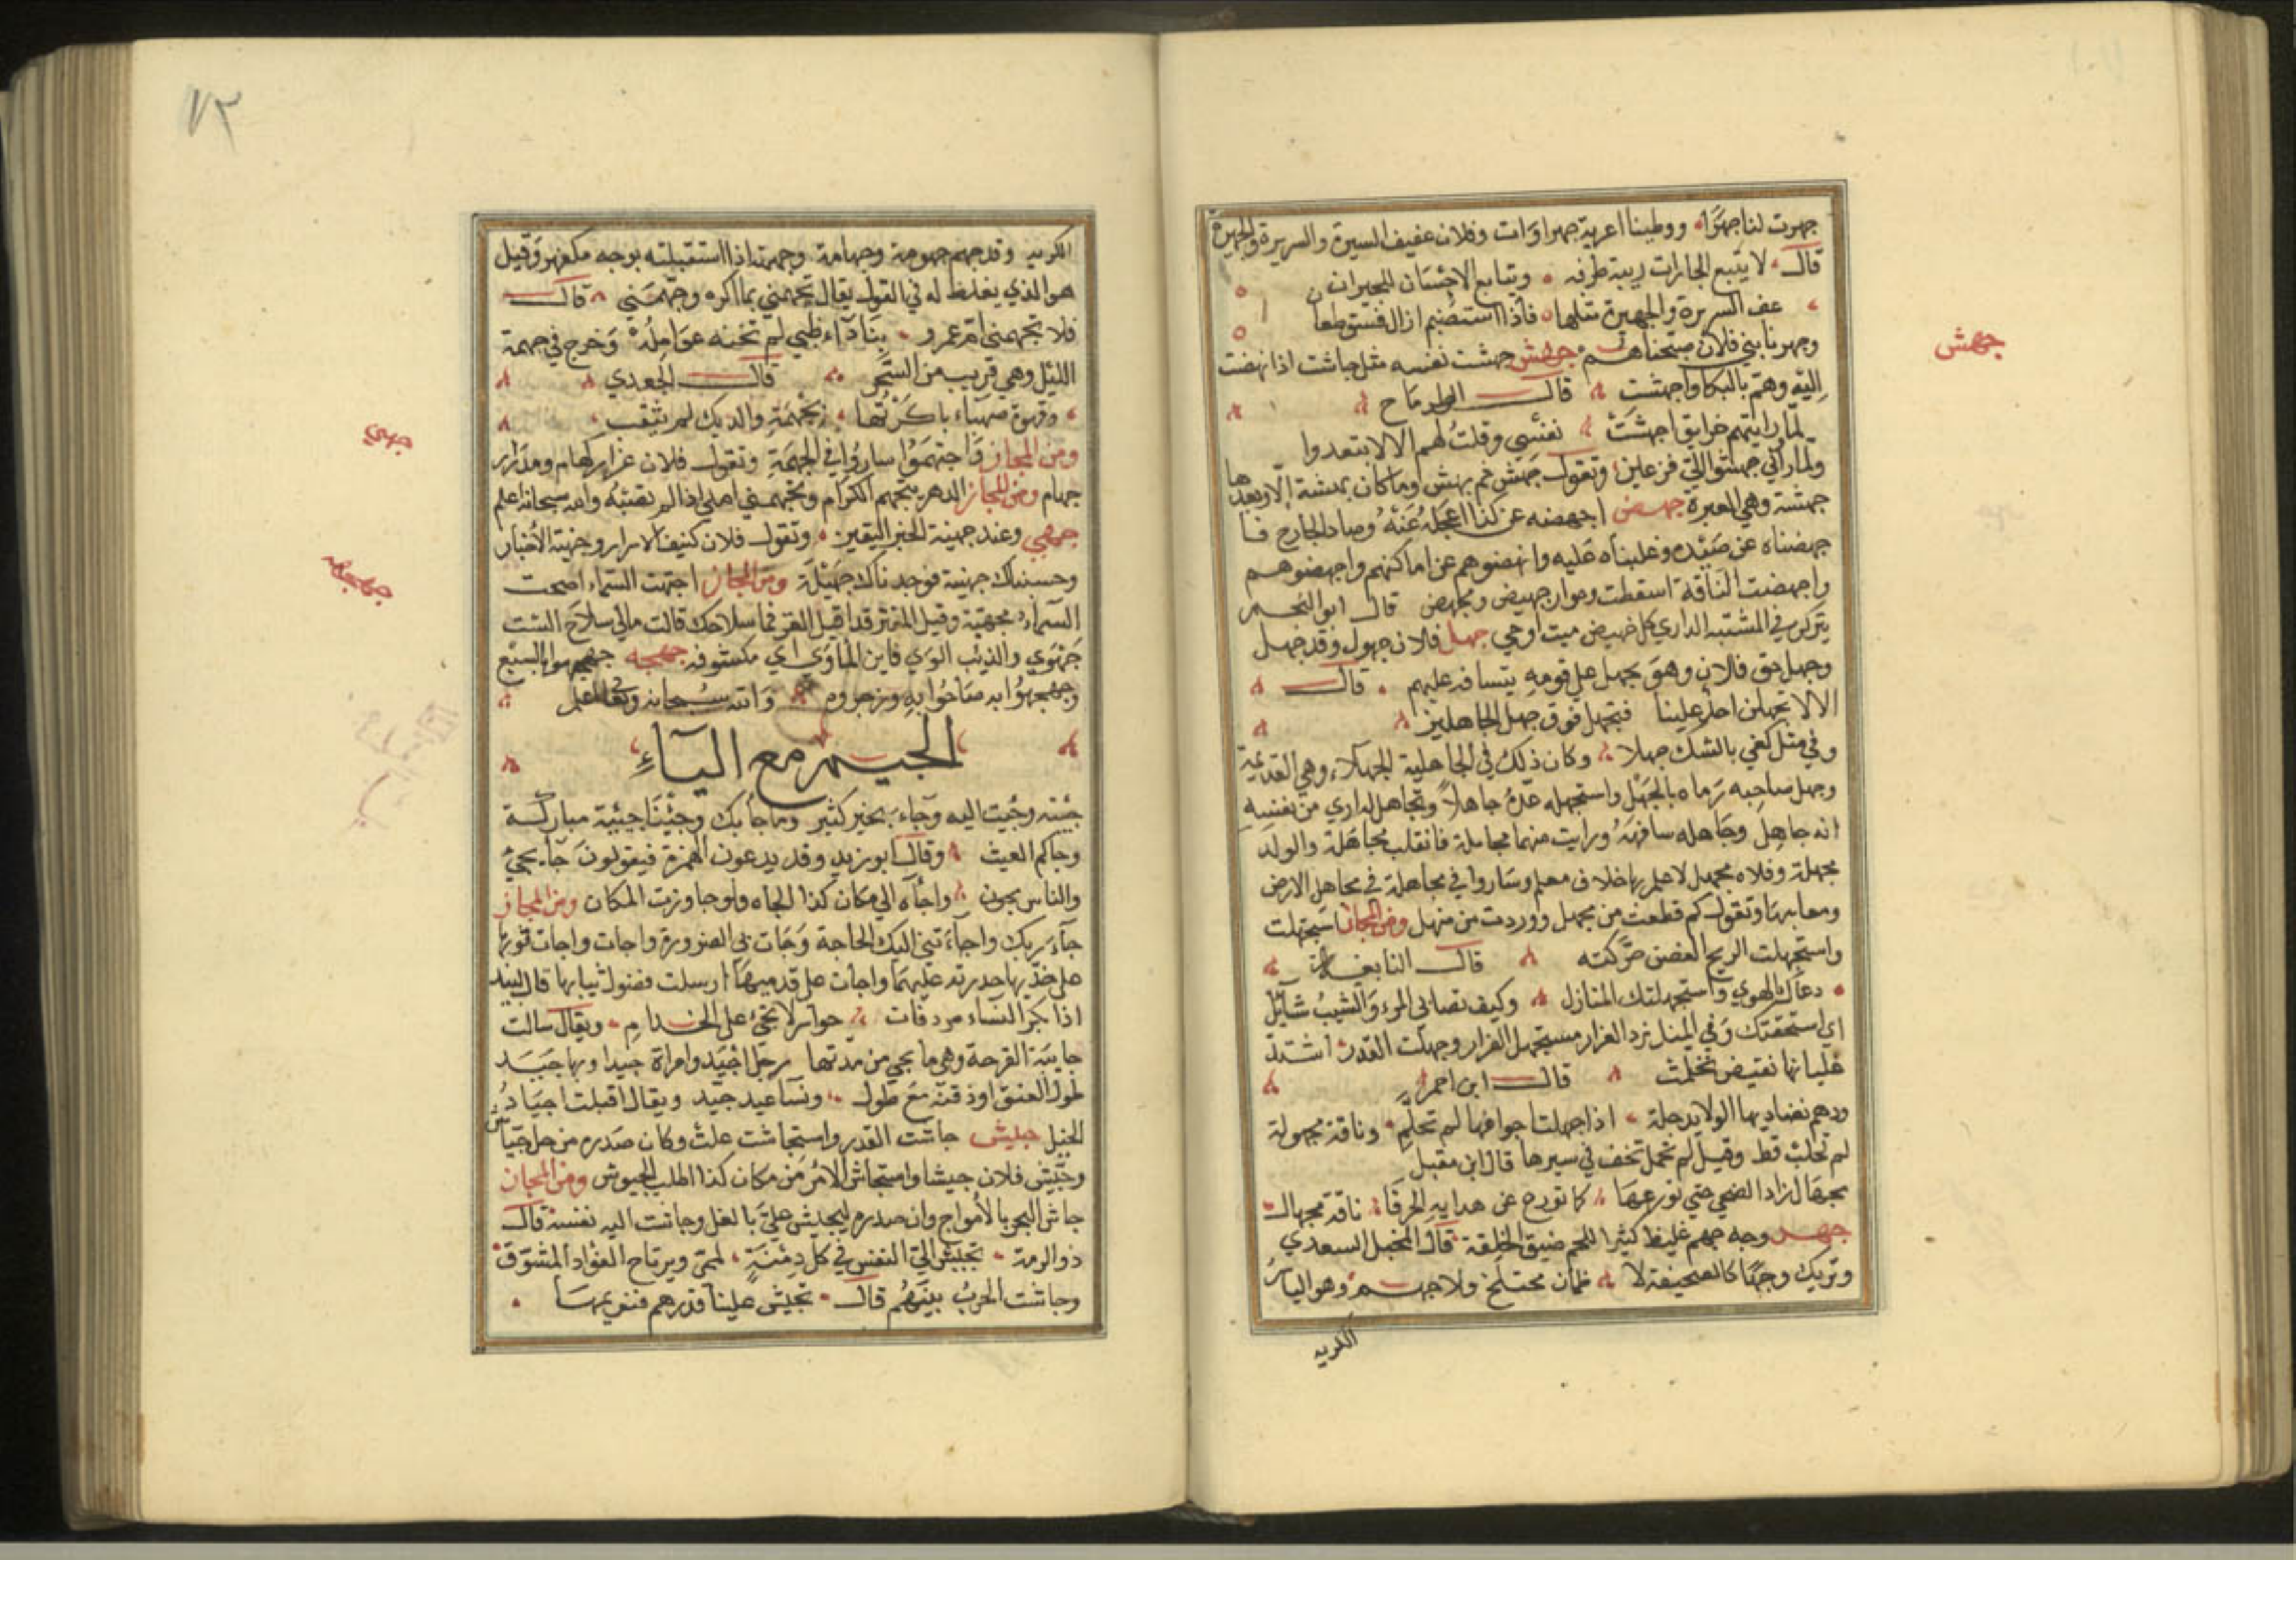 جهرت لنا جهرًا ووطينا اعرية جهراوات وفلان عفيف السيرة والسريرة والجهيرة
قال لا يتبع الجارات ريبة طرفه ويتابع الاحسان للجيران
عف السريرة والجهيرة مثلها فاذا استضيم ازال فسق
وجهرنا بني فلان صبحناهم جهش جهشت نفسه مثل جاشت اذا نهضت
اليه وهم بالبكا واجهشت قال الطرماح
لما رايتهم خرايق اجهشت نفسي وقلت لهم الا لا تبعدوا
ولما راني جهشوا الي فزعين وتقول جهش ثم بهش وما كان بهشة الا وبعدها
جهشة وهي العبرة جهض اجهضه عن كذا اعجله عنه وصاد الجارح فا
جهضناه عن صيده وغلبناه عليه وانهضوهم عن اماكنهم واجهضوهم
واجهضت الناقة اسقطت وحوار جهيض ومجهض قال ابو النجم
يتركن في المشتبه الداري كل جهيض ميت او حي جهل فلان جهول وقد جهل
وجهل حق فلان وهو يجهل علي قومه يتسافه عليهم قال
الا لا يجهلن احد علينا فنجهل فوق جهل الجاهلين
وفي مثل كفي بالشك جهلا وكان ذلك في الجاهلية الجهلاء وهي القديمة
وجهل صاحبه رماه بالجهل واستجهله عده جاهلا وتجاهل اري من نفسه
انه جاهل وجاهله سافهه ورايت منهما مجاملة فانقلب مجاهلة والولد
مجهلة وفلاه مجهل لا علم بها خلاف معلم وساروا في مجاهلة في مجاهل الارض
ومعابرها وتقول كم قطعت من مجهل ووردت من منهل ومن المجاز استجهلت
واستجهلت الريح الغصن حركته قال النابغة
دعاك الهوي واستجهلتك المنازل وكيف تصابي المرء والشيب شامل
اي استخفتك وفي المثل نزو الفرار مستجهل الفرار وجهلت القدر اشتد
غليانها نقيض تحلمت قال ابن احمر
ودهم تصاديها الولايد جلة اذا جهلت اجوافها لم تحلم وناقة مجهولة
لم تحلب قط وقيل لم تحمل تخف في سيرها قال ابن مقبل
ناقة مجهال
جهم وجه جهم غليظ كثير اللحم ضيق الخلقة قال المخبل السعدي
وتريك وجها كالصحيفة لا ظمان مختلج ولا جهم وهو الباسر
الكريه
جهش
الكريه وقد جهم جهومة وجهامة وجهمته اذا استقبلته بوجه مكفهر وقيل
هو الذي يغلظ له في القول يقال تجهمني بما اكره وجهمني قال
فلا تجهمني ام عمرو بنا داء ظبي لم تخنه عوامله وخرج في جهمة
الليل وهي قريب من السحر قال الجعدي
وقهوة صهباء باكرتها بجهمة والديك لم ينعب
ومن المجاز واجتهموا ساروا في الجهمة وتقول فلان كهام ومدرار
جهام ومن المجاز الدهر يتجهم الكرام وتجهمني املي اذا لم تصبه والله سبحانه اعلم
جهي وعند جهينة الخبر اليقين وتقول فلان كنيف الاسرار وجهينة الاخبار
وحسبناك جهينة فوجدناك جهيلة ومن المجاز اجهت السماء اصحت
السماء مجهية وقيل للمعز قد اقبل القر فما سلاحك قالت مالي سلاح الست
جهوي والذنب الوي فاين الماوي اي مكشوفة جهجه جهجهوا بالسبع
وجهجهوا به صاحوا به وزجروه والله سبحانه وتعالى اعلم
الجيم مع الياء
جئته وجئت اليه وجاء بخير كثير وما جأ بك وجئنا جيئة مباركة
وجاكم الغيث وقال ابو زيد وقد يدعون الهمزة فيقولون جا يجي
والناس يجون واجآه الي مكان كذا الجاه ولو جاوزت المكان ومن المجاز
جاء ربك واجاءتني اليك الحاجة وجات بي الضرورة واجات واجات ثوبها
علي خديها حدرته عليهما واجأت علي قدميها ارسلت فضول ثيابها قال لبيد
اذا بكر النساء مردفات حواسر لا تجئ على الخدام ويقال سالت
جايية القرحة وهي ما يجي من مدتها رجل اجيد وامراة جيدا وبها جيد
طول العنق او دقته مع طول ونسا عيد جيد ويقال اقبلت اجياد
الخيل جيش جاشت القدر واستجاشت غلت وكان صدره مرجل جياش
وجيش فلان جيشا واستجاش الامير من مكان كذا طلب الجيوش ومن المجاز
جاش البحر بالامواج وان صدره ليجيش علي بالغل وجاشت اليه نفسه قال
ذو الرمة تجيش الي النفس في كل دمنة لمي ويرتاح الفؤاد المشوق
وجاشت الحرب بينهم قال تجيش علينا قدرهم فنديمها
جهي
جهجه
٧٣